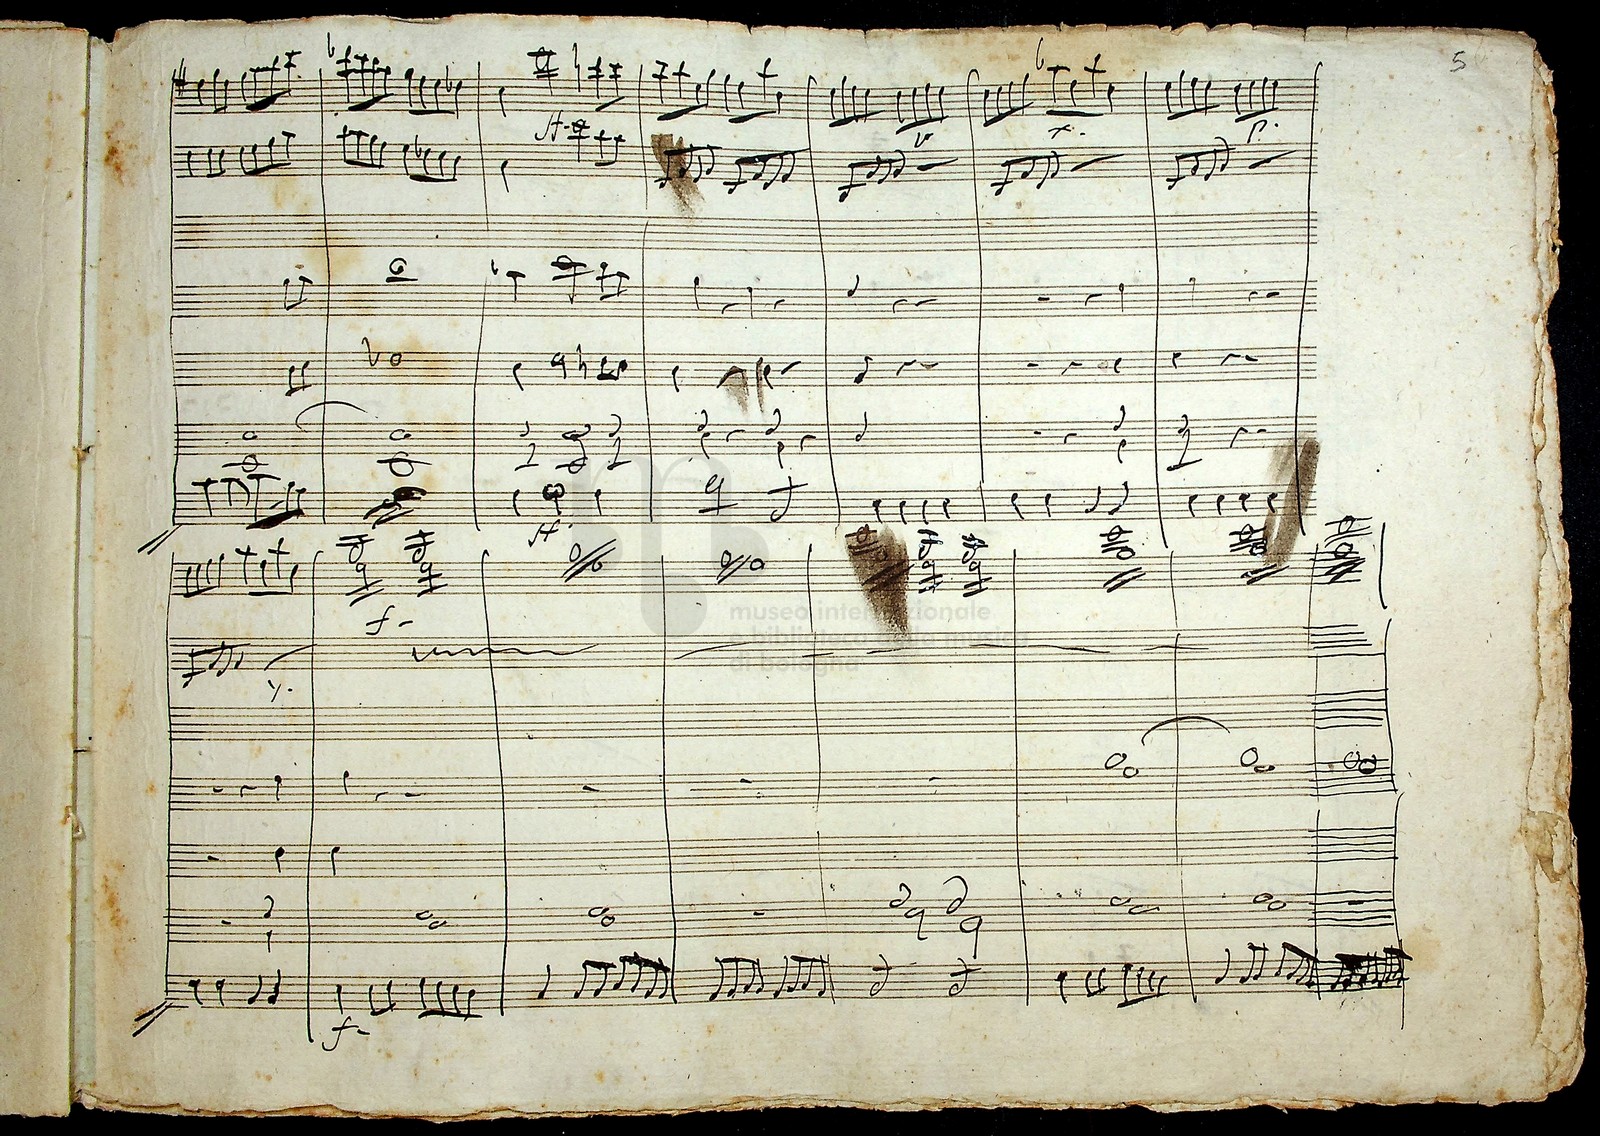 5
f-
f-
museo internazionale
e biblioteca della musica
di bologna